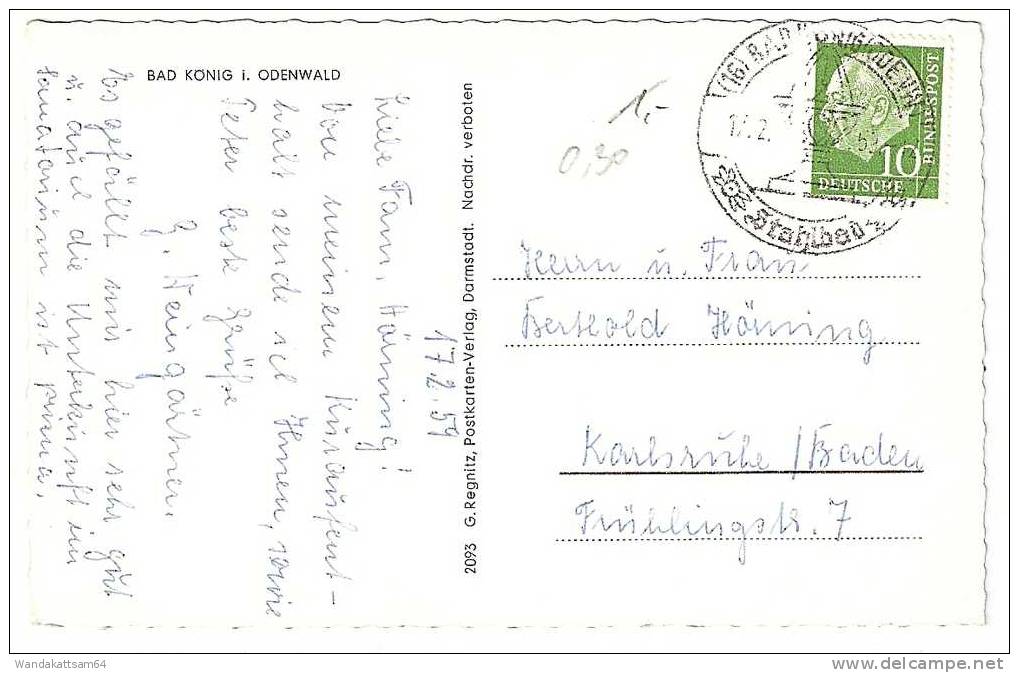 BAD KÖNIG i. ODENWALD
17.2.59
Liebe Fam. Hörning!
Von meinem Kuraufent-
halt sende ich Ihnen, sowie
Peter beste Grüße
Weingärtner.
Es gefällt mir hier sehr gut
u. auch die Unterkunft im
Sanatorium ist prima.
2093 G. Regnitz, Postkarten-Verlag, Darmstadt. Nachdr. verboten
1,-
0,30
(16) BAD KÖNIG (ODENW)
17.2.
Stahlbad
10
DEUTSCHE
BUNDESPOST
Herrn u. Frau
Berthold Hörning
Karlsruhe / Baden
Frühlingstr. 7
Wandakattsam64
www.delcampe.net